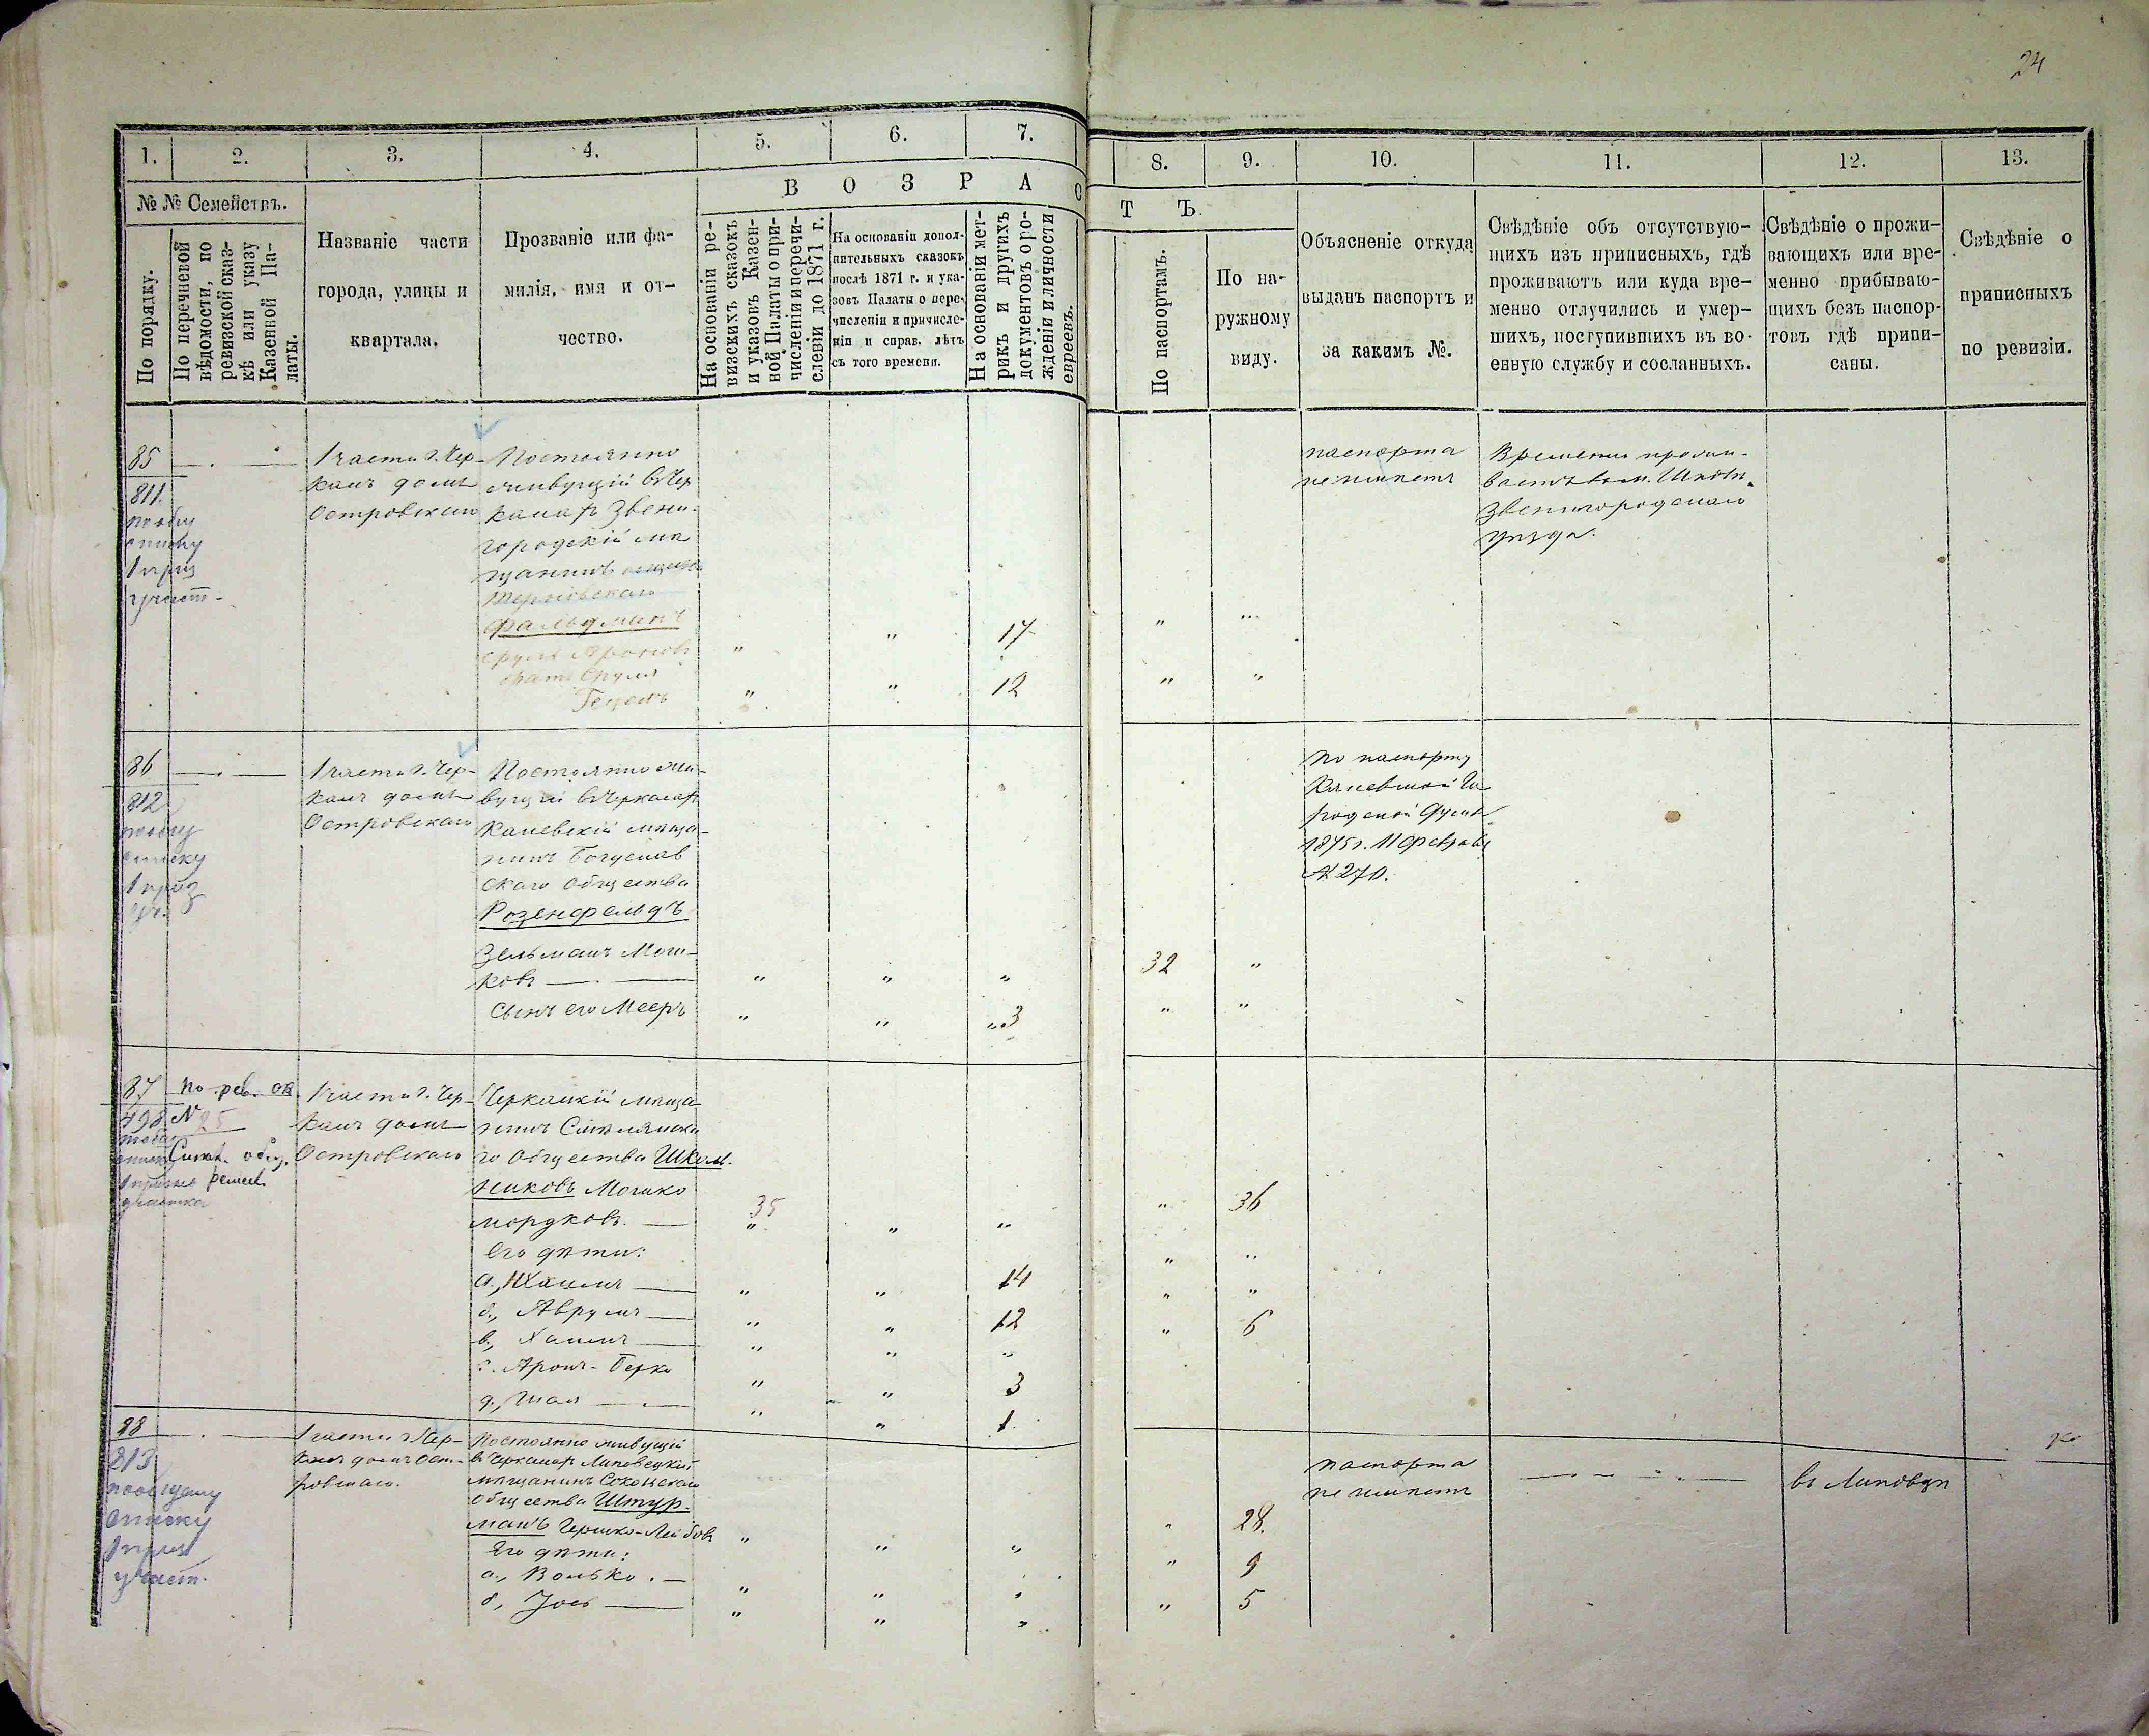 24
1.
2.
3.
4.
5.
6.
7.
8.
9.
10.
11.
12.
13.
№ № Семействъ.
По порядку.
По перечневой
вѣдомости, по
ревизской сказ-
кѣ или указу
Казенной Па-
латы.
Названіе части
города, улицы и
квартала.
Прозваніе или фа-
милія, имя и от-
чество.
ВОЗРАСТЪ
На основаніи ре-
визскихъ сказокъ
и указовъ Казен-
ной Палаты о при-
численіи и перечи-
слевіи до 1871 г.
На основаніи допол-
нительныхъ сказокъ
послѣ 1871 г. и ука-
зовъ Палаты о пере-
численіи и причисле-
ніи и справ. лѣтъ
съ того времени.
На основаніи мет-
рикъ и другихъ
документовъ о ро-
жденіи и личности
евреевъ.
По паспортамъ.
По на-
ружному
виду.
Объясненіе откуда
выданъ паспортъ и
за какимъ №.
Свѣдѣніе объ отсутствую-
щихъ изъ приписныхъ, гдѣ
проживаютъ или куда вре-
менно отлучились и умер-
шихъ, поступившихъ въ во-
енную службу и сосланныхъ.
Свѣдѣніе о прожи-
вающихъ или вре-
менно прибываю-
щихъ безъ паспор-
товъ гдѣ припи-
саны.
Свѣдѣніе о
приписныхъ
по ревизіи.
85
811
списку
участ-
1 части г. Чер-
касъ домъ
Островскаго
Постоянно
живущій въ Чер
касахъ Звени-
городскій мѣ
щанинъ
Фальдманъ
Сруль Ароновъ
братъ Сруля
Гецель
" " 17 " "
" " 12 " "
паспорта
не имѣетъ
Временно прожи-
Звенигородскаго
уѣзда.
86
812
списку
1 приз
уч.
1 части г. Чер-
касъ домъ
Островскаго
Постоянно жи-
вущій въ Черкасахъ
Каневскій мѣща-
нинъ Богуслав
скаго общества
Розенфельдъ
Зельманъ Мош-
ковъ
" " " 32 "
Сынъ его Мееръ
" " 3 " "
по паспорту
Каневской Го
родской Думы
1875 г. 11 Февраля
№ 270.
87
498
По рев. ск.
№ 25
общ.
1 части г. Чер-
касъ домъ
Островскаго
Черкаскій мѣща-
нинъ Смѣлянска
го Общества Школ-
никовъ Мошко
мордковъ
35 " " " 36
Его дѣти:
а.,
14
б., Аврумъ
12
в., Хаимъ
6
г. Аронъ-Берко
3
д.,
1
88
813
по общему
списку
участ.
1 части г. Чер-
касъ домъ Ост-
ровскаго.
Постоянно живущій
въ Черкасахъ Липовецкій
мѣщанинъ
общества Штур-
манъ Гершко-Лейбовъ
" " " " 28.
Его дѣти:
а., Волько
" " " " 9
б., Іось
" " " " 5
паспорта
не имѣетъ
въ Липовцѣ